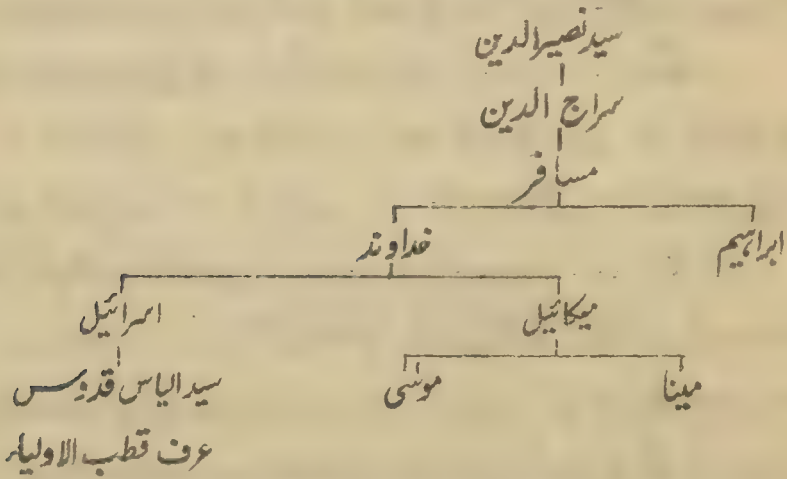 سید نصیرالدین
سراج الدین
مسافر
ابراہیم
خداوند
میکائیل
اسرائیل
مینا
موسٰی
سید الیاس قدوس
عرف قطب الاولیاء